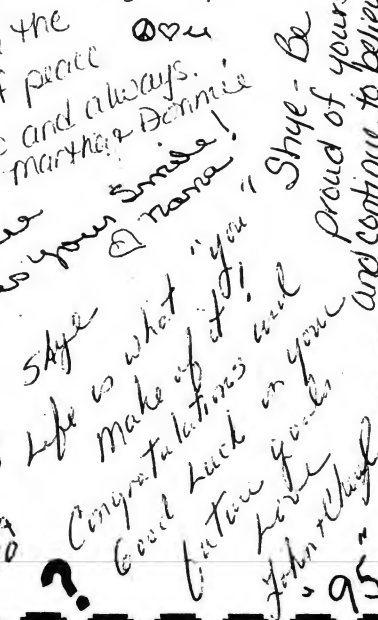 the
☮♡u
peace
and always.
Martha & Donnie
your smile!
♡ nana
Shye - Be
proud of yours
and continue to believ
Shye
Life is what "you"
make of it!
Congratulations and
Good Luck in your
future goals
Love
John & Cheryl
"95"
?